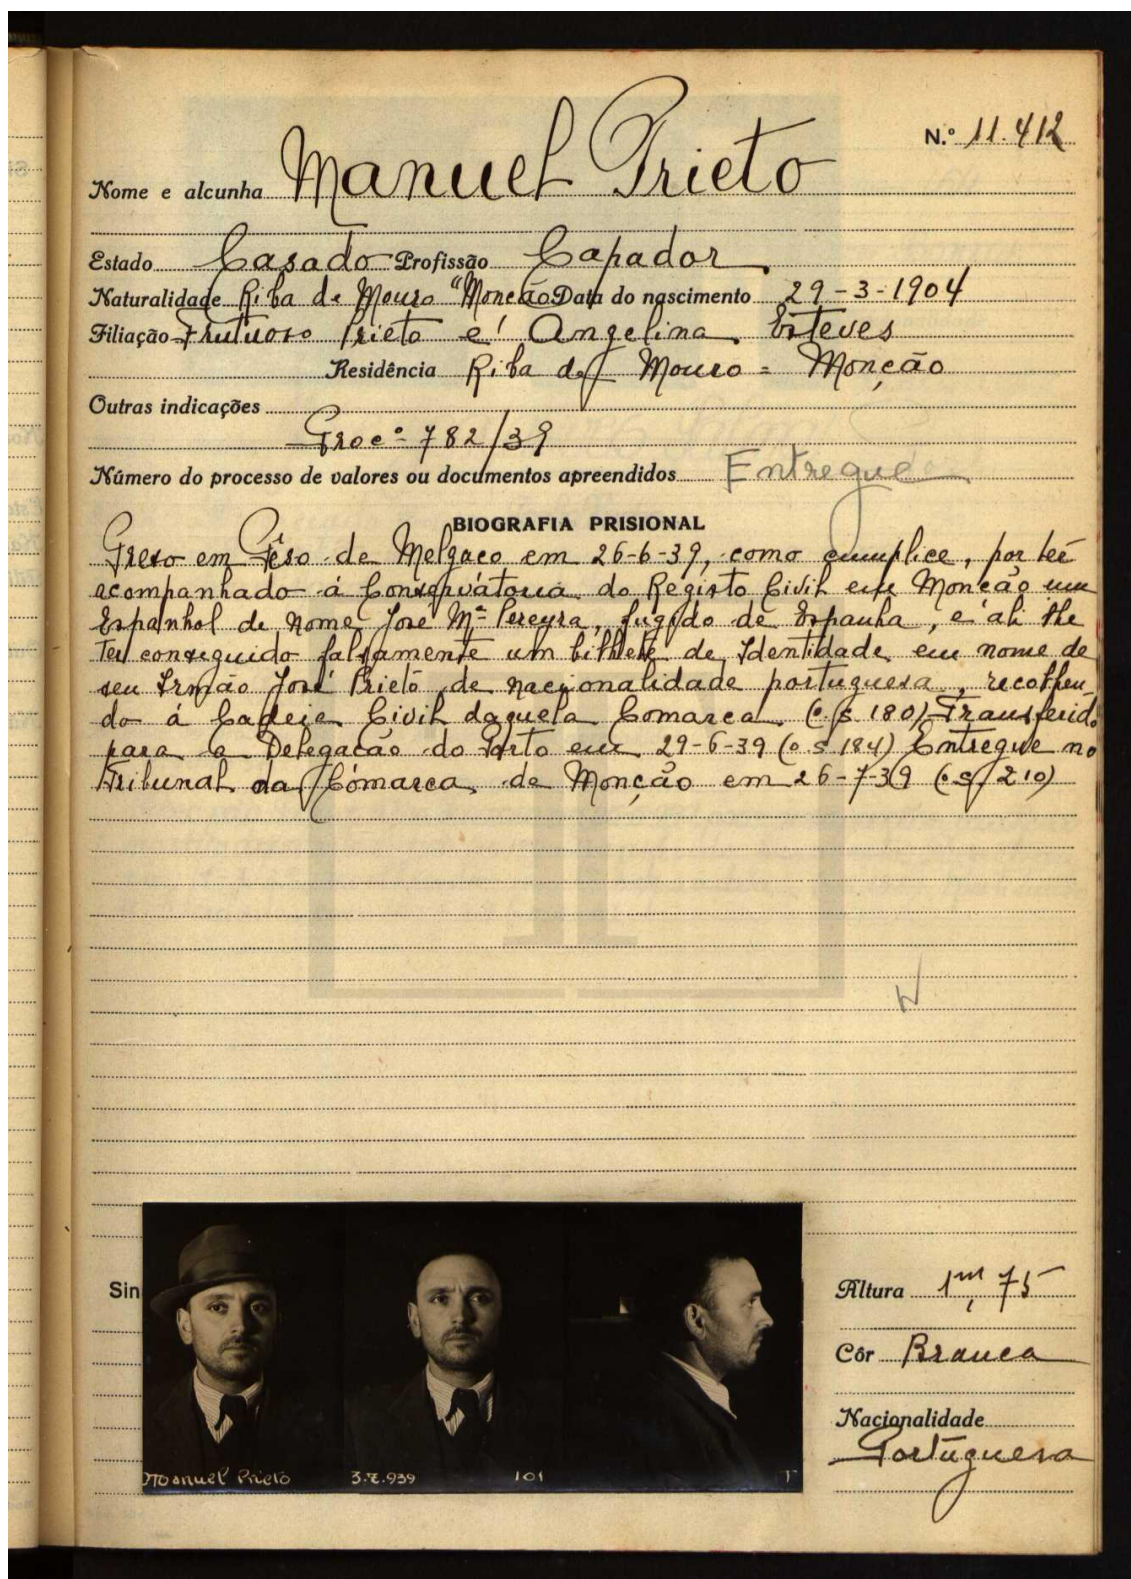 N.º 11.412
Nome e alcunha Manuel Prieto
Estado Casado Profissão Capador
Naturalidade Riba de Mouro "Monção Data do nascimento 29-3-1904
Filiação Frutuoso Prieto e Angelina Esteves
Residência Riba de Mouro = Monção
Outras indicações
Proc.º 782/39
Número do processo de valores ou documentos apreendidos Entregue
BIOGRAFIA PRISIONAL
Preso em Pêso de Melgaço em 26-6-39, como cumplice, por ter
acompanhado á Conservátoria do Registo Civil em Monção um
Espanhol de nome José Mª Pereyra, fugido de Espanha, e ali lhe
ter conseguido falsamente um bilhete de Identidade em nome de
seu Irmão José Prieto de nacionalidade portuguesa, recolhen-
do á Cadeia Civil daquela Comarca (o.s. 180) Transferido
para a Delegação do Porto em 29-6-39 (o.s 184) Entregue no
Tribunal da Comarca de Monção em 26-7-39 (o.s/210)
Sin
Altura 1m,75
Côr Branca
Nacionalidade
Portuguesa
Manuel Prieto 3.7.939 101 T